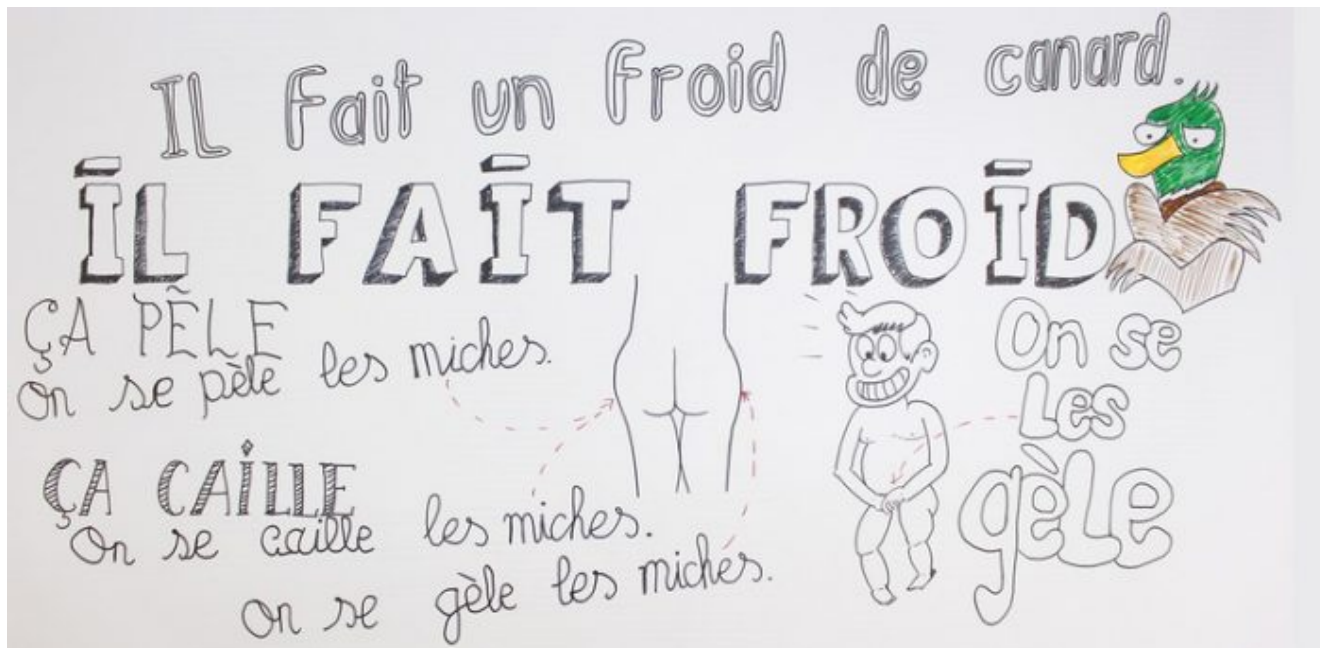 Il fait un froid de canard.
IL FAIT FROID
ÇA PÈLE
On se pèle les miches.
On se
Les
gèle
ÇA CAILLE
On se caille les miches.
on se gèle les miches.